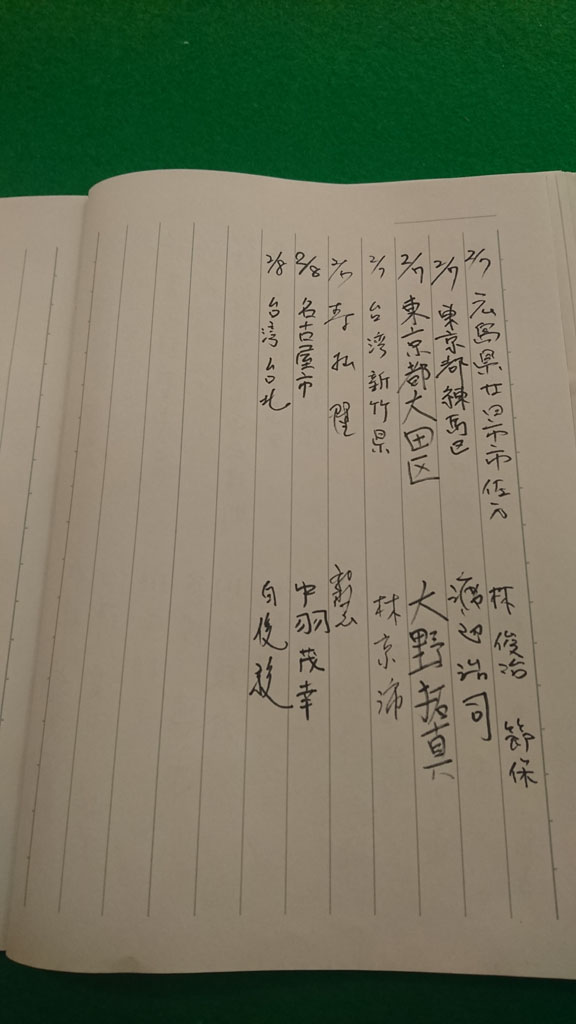 2/7 広島県廿日市市佐方 林俊治 節保
2/7 東京都練馬区 渡辺浩司
2/7 東京都大田区 大野拓真
2/7 台湾新竹県 林京沛
2/7
2/8 名古屋市 中羽茂幸
2/8 台湾台北 白俊